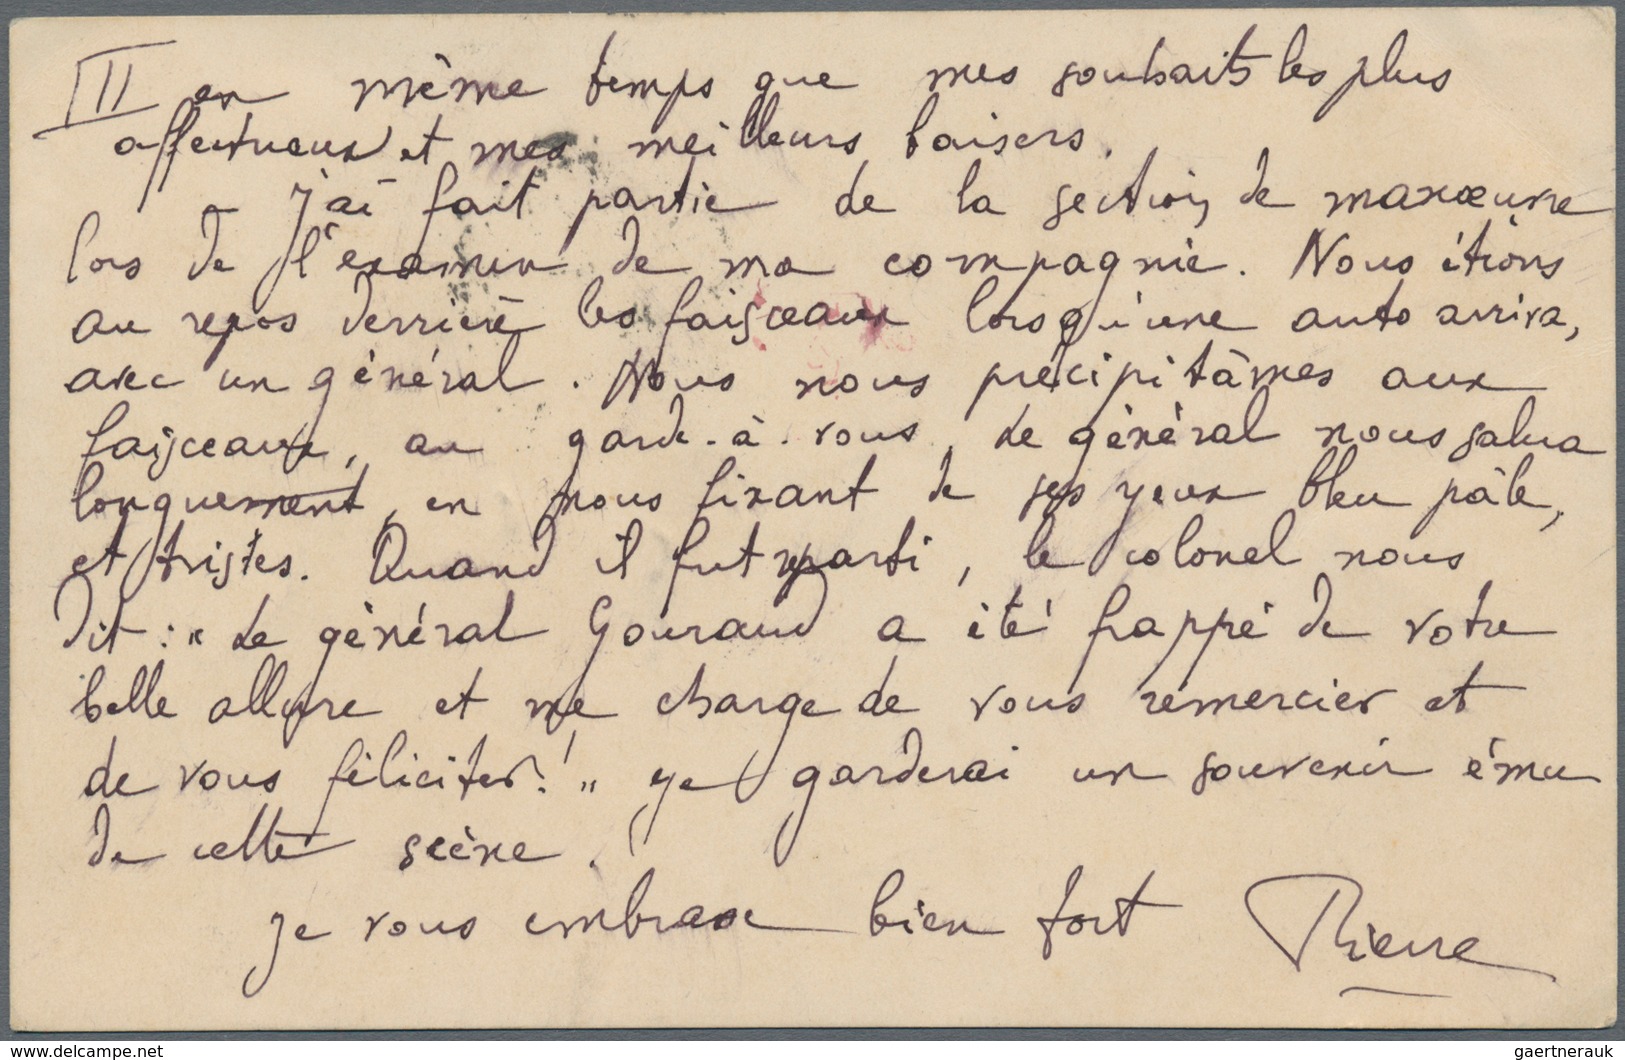 II en même temps que mes souhaits les plus
affectueux et mes meilleurs baisers.
J'ai fait partie de la section de manœuvre
lors de l'examen de ma compagnie. Nous étions
au repos derrière les faisceaux lorsqu'une auto arriva,
avec un général. Nous nous précipitâmes aux
faisceaux, au garde-à-vous, Le général nous salua
longuement, en nous fixant de ses yeux bleu pâle,
et tristes. Quand il fut reparti, le colonel nous
dit : "Le général Gouraud a été frappé de votre
belle allure et me charge de vous remercier et
de vous féliciter!" Je garderai un souvenir ému
de cette scène.
Je vous embrasse bien fort Pierre
www.delcampe.net
gaertnerauk